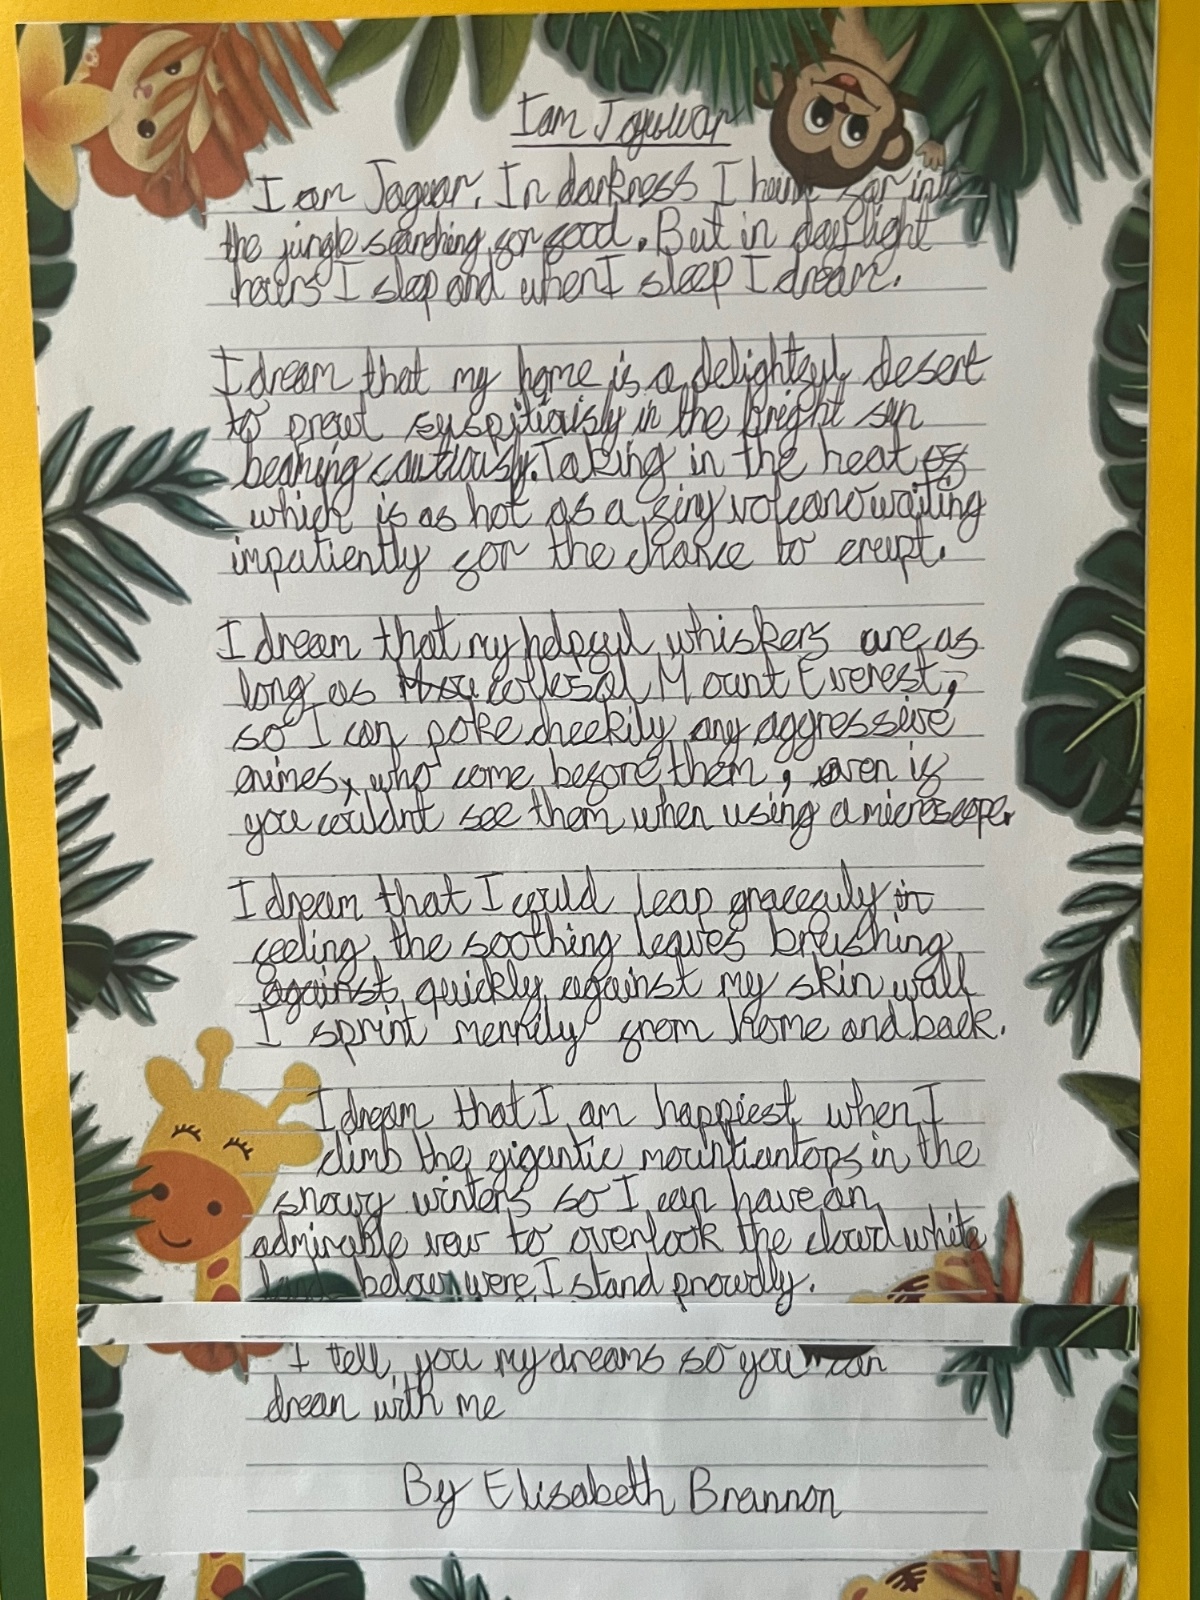 I am Jaguar
I am Jaguar. In darkness I hunt far into
the jungle searching for food. But in day light
hours I sleep and when I sleep I dream.
I dream that my home is a delightful desert
to prowl suspitiously in the bright sun
beaming cautiously. Taking in the heat of
which is as hot as a firy volcano waiting
impatiently for the chance to erupt.
I dream that my helpful whiskers are as
long as collosal Mount Everest,
so I can poke cheekily any aggressive
enimes, who come before them, even if
you couldnt see them when using a microscope.
I dream that I could leap gracefuly in
feeling the soothing leaves brushing
against quickly against my skin wall
I sprint merrily from home and back.
I dream that I am happiest when I
climb the gigantic mountiantops in the
snowy winters so I can have an
admirable vew to overlook the cloud white
land below were I stand proudly.
I tell you my dreams so you can
dream with me
By Elisabeth Brannon